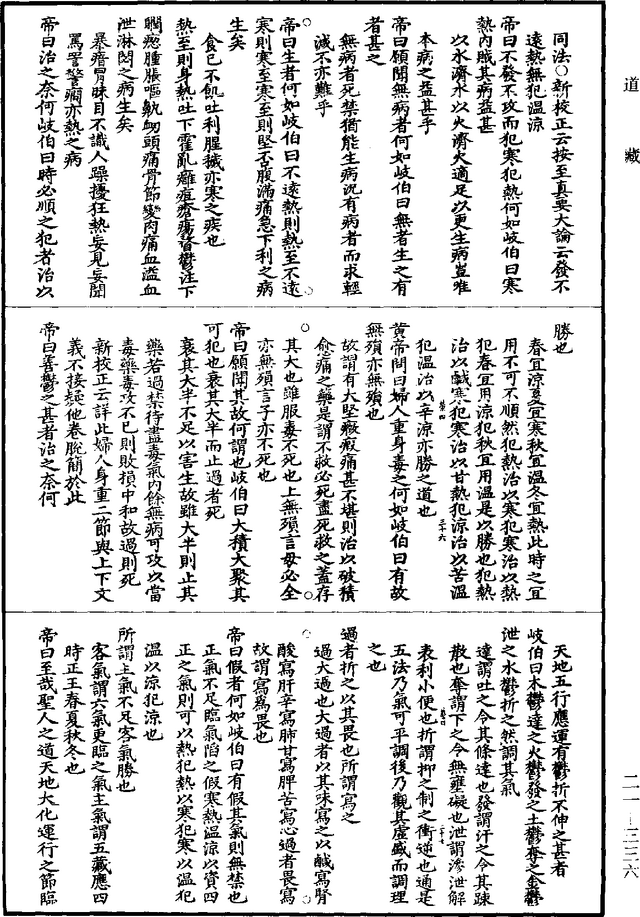 道藏
同法○新校正云按至真要大論云發不
遠熱無犯溫涼
帝曰不發不攻而犯寒犯熱何如岐伯曰寒
熱內賊其病益甚
以水濟水以火濟火適足以更生病豈唯
本病之益甚乎
帝曰願聞無病者何如岐伯曰無者生之有
者甚之
無病者死禁猶能生病況有病者而求輕
減不亦難乎
帝曰生者何如岐伯曰不遠熱則熱至不遠
寒則寒至寒至則堅否腹滿痛急下利之病
生矣
食已不飢吐利腥穢亦寒之疾也
熱至則身熱吐下霍亂癰疽瘡瘍瞀鬱注下
瞤瘛腫脹嘔鼽衂頭痛骨節變肉痛血溢血
泄淋閟之病生矣
暴瘖冒昧目不識人躁擾狂熱妄見妄聞
罵詈驚癇亦熱之病
帝曰治之奈何岐伯曰時必順之犯者治以
勝也
春宜涼夏宜寒秋宜溫冬宜熱此時之宜
用不可不順然犯熱治以寒犯寒治以熱
犯春宜用涼犯秋宜用溫是以勝也犯熱
治以鹹寒犯寒治以甘熱犯涼治以苦溫
犯溫治以辛涼亦勝之道也
黃帝問曰婦人重身毒之何如岐伯曰有故
無殞亦無殞也
故謂有大堅癥瘕痛甚不堪則治以破積
愈痛之藥是謂不救必死盡死救之蓋存
其大也雖服毒不死也上無殞言母必全
亦無殞言子亦不死也
帝曰願聞其故何謂也岐伯曰大積大聚其
可犯也衰其大半而止過者死
衰其大半不足以害生故雖大半則止其
藥若過禁待盡毒氣內餘無病可攻以當
毒藥毒攻不已則敗損中和故過則死
新校正云詳此婦人身重二節與上下文
義不接疑他卷脫簡於此
帝曰善鬱之甚者治之奈何
天地五行應運有鬱折不伸之甚者
岐伯曰木鬱達之火鬱發之土鬱奪之金鬱
泄之水鬱折之然調其氣
達謂吐之令其條達也發謂汗之令其踈
散也奪謂下之令無壅礙也泄謂滲泄解
表利小便也折謂抑之制之衝逆也通是
五法乃氣可平調後乃觀其虛盛而調理
之也
過者折之以其畏也所謂寫之
過大過也大過者以其味寫之以鹹寫腎
酸寫肝辛寫肺甘寫脾苦寫心過者畏寫
故謂寫為畏也
帝曰假者何如岐伯曰有假其氣則無禁也
正氣不足臨氣陷之假寒熱溫涼以資四
正之氣則可以熱犯熱以寒犯寒以溫犯
溫以涼犯涼也
所謂主氣不足客氣勝也
客氣謂六氣更臨之氣主氣謂五藏應四
時正王春夏秋冬也
帝曰至哉聖人之道天地大化運行之節臨
二一—三三六